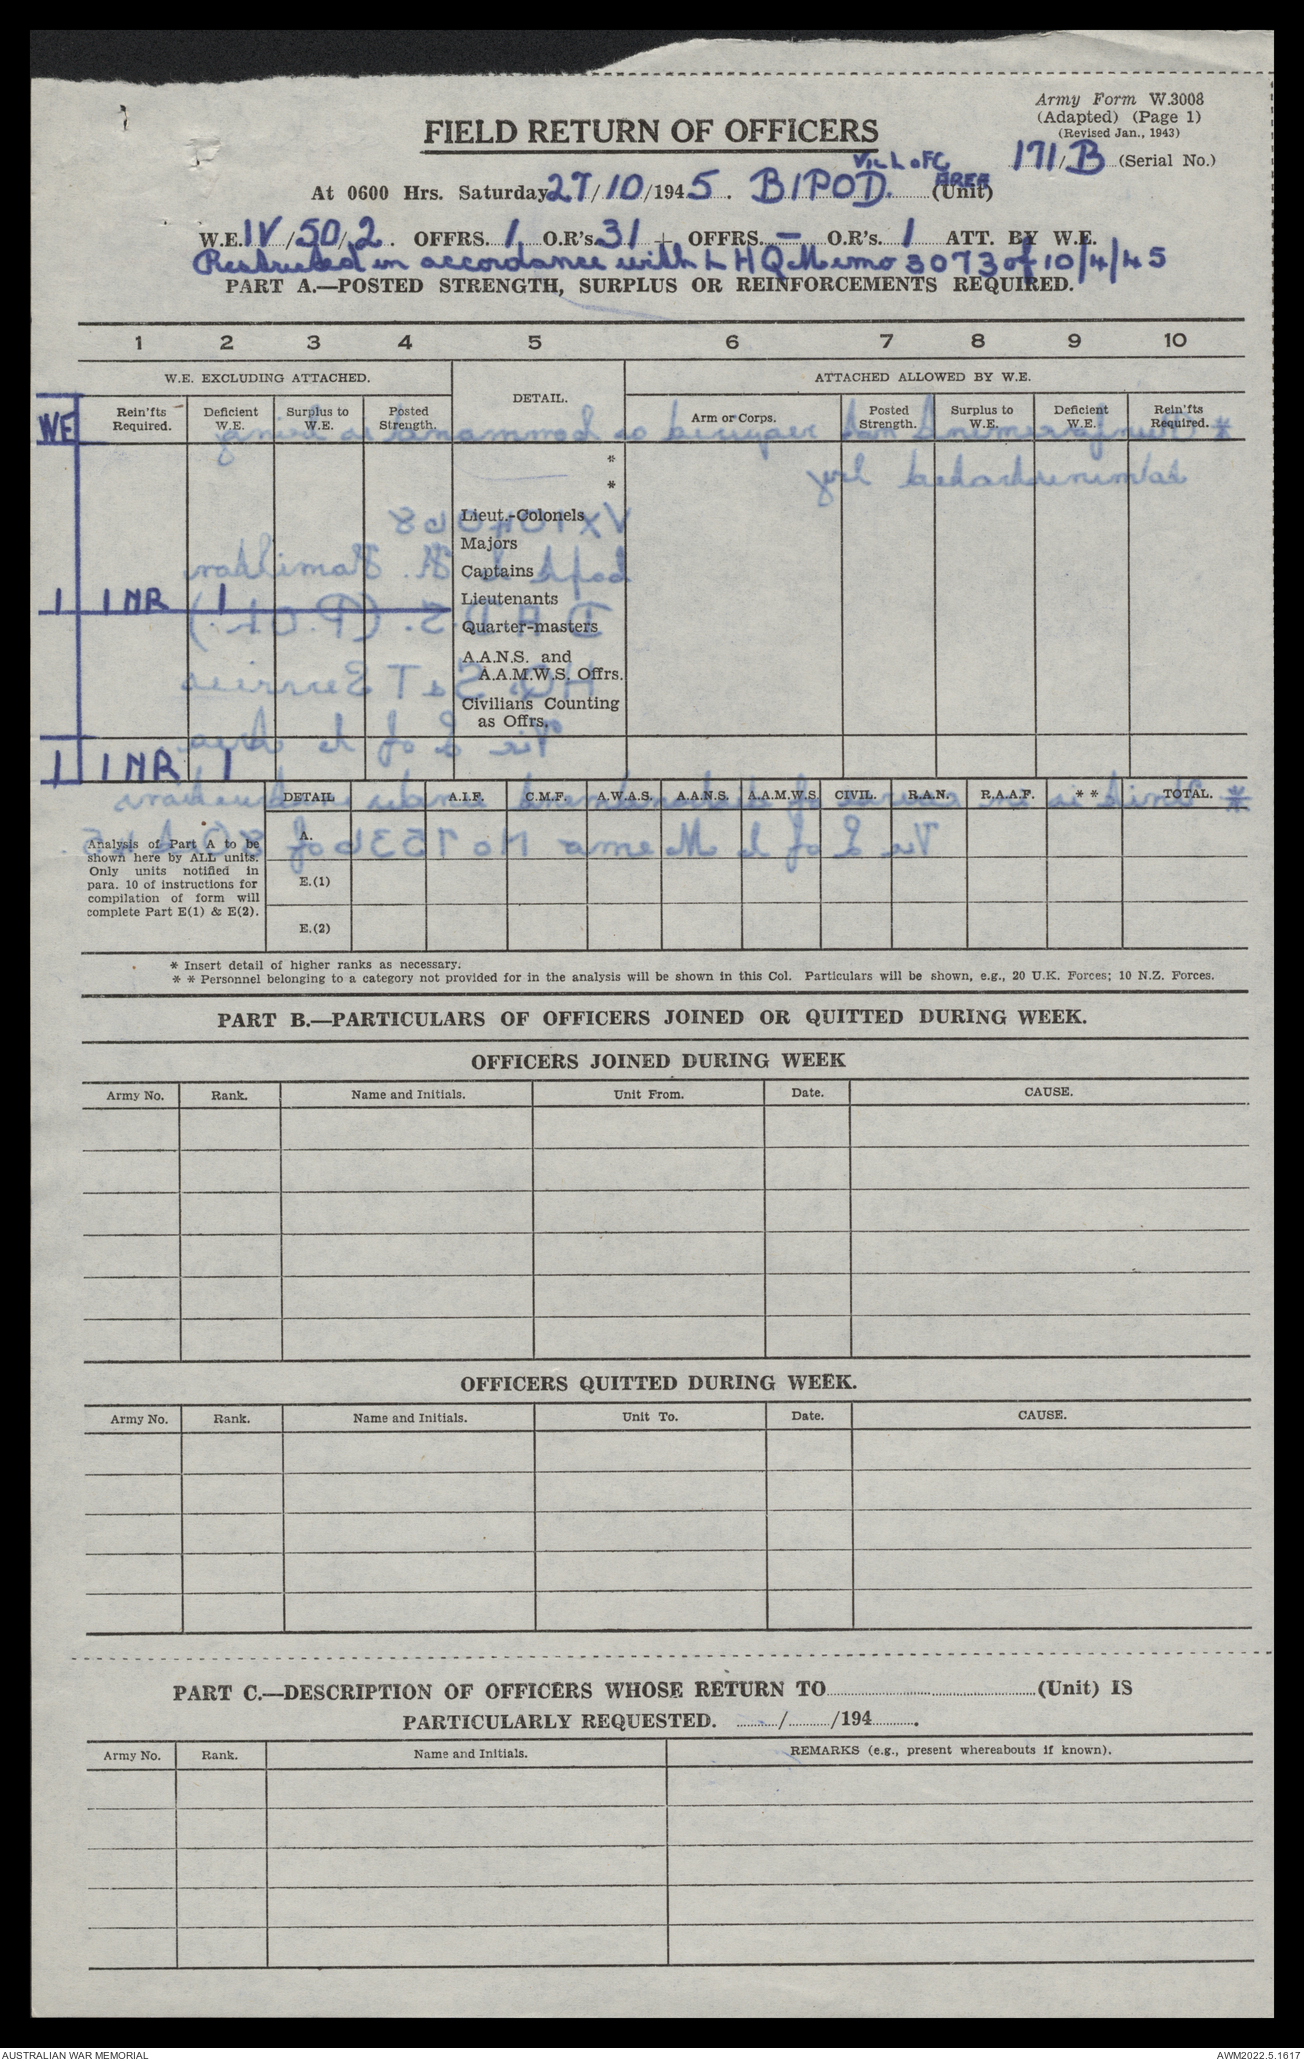 Army Form W.3008
(Adapted) (Page 1)
(Revised Jan., 1943)
FIELD RETURN OF OFFICERS
171/B (Serial No.)
Vic L of C
AREA
At 0600 Hrs. Saturday 27/10/1945. BIPOD. (Unit)
W.E. IV/50/2. OFFRS. 1 O.R's. 31 + OFFRS. - O.R's. 1 ATT. BY W.E.
Restricted in accordance with L H Q Memo 3073 of 10/4/45
PART A.—POSTED STRENGTH, SURPLUS OR REINFORCEMENTS REQUIRED.
1 2 3 4 5 6 7 8 9 10
W.E. EXCLUDING ATTACHED. DETAIL. ATTACHED ALLOWED BY W.E.
WE Rein'fts Required. Deficient W.E. Surplus to W.E. Posted Strength. Arm or Corps. Posted Strength. Surplus to W.E. Deficient W.E. Rein'fts Required.
*
*
Lieut.-Colonels
Majors
Captains
1 1 NR 1 Lieutenants
Quarter-masters
A.A.N.S. and
A.A.M.W.S. Offrs.
Civilians Counting
as Offrs.
1 1 NR 1
DETAIL A.I.F. C.M.F. A.W.A.S. A.A.N.S. A.A.M.W.S. CIVIL. R.A.N. R.A.A.F. * * TOTAL.
Analysis of Part A to be
shown here by ALL units.
Only units notified in
para. 10 of instructions for
compilation of form will
complete Part E(1) & E(2).
A.
E.(1)
E.(2)
* Insert detail of higher ranks as necessary.
* * Personnel belonging to a category not provided for in the analysis will be shown in this Col. Particulars will be shown, e.g., 20 U.K. Forces; 10 N.Z. Forces.
PART B.—PARTICULARS OF OFFICERS JOINED OR QUITTED DURING WEEK.
OFFICERS JOINED DURING WEEK
Army No. Rank. Name and Initials. Unit From. Date. CAUSE.
OFFICERS QUITTED DURING WEEK.
Army No. Rank. Name and Initials. Unit To. Date. CAUSE.
PART C.—DESCRIPTION OF OFFICERS WHOSE RETURN TO.......... (Unit) IS
PARTICULARLY REQUESTED. ........../........../194..........
Army No. Rank. Name and Initials. REMARKS (e.g., present whereabouts if known).
AUSTRALIAN WAR MEMORIAL
AWM2022.5.1617